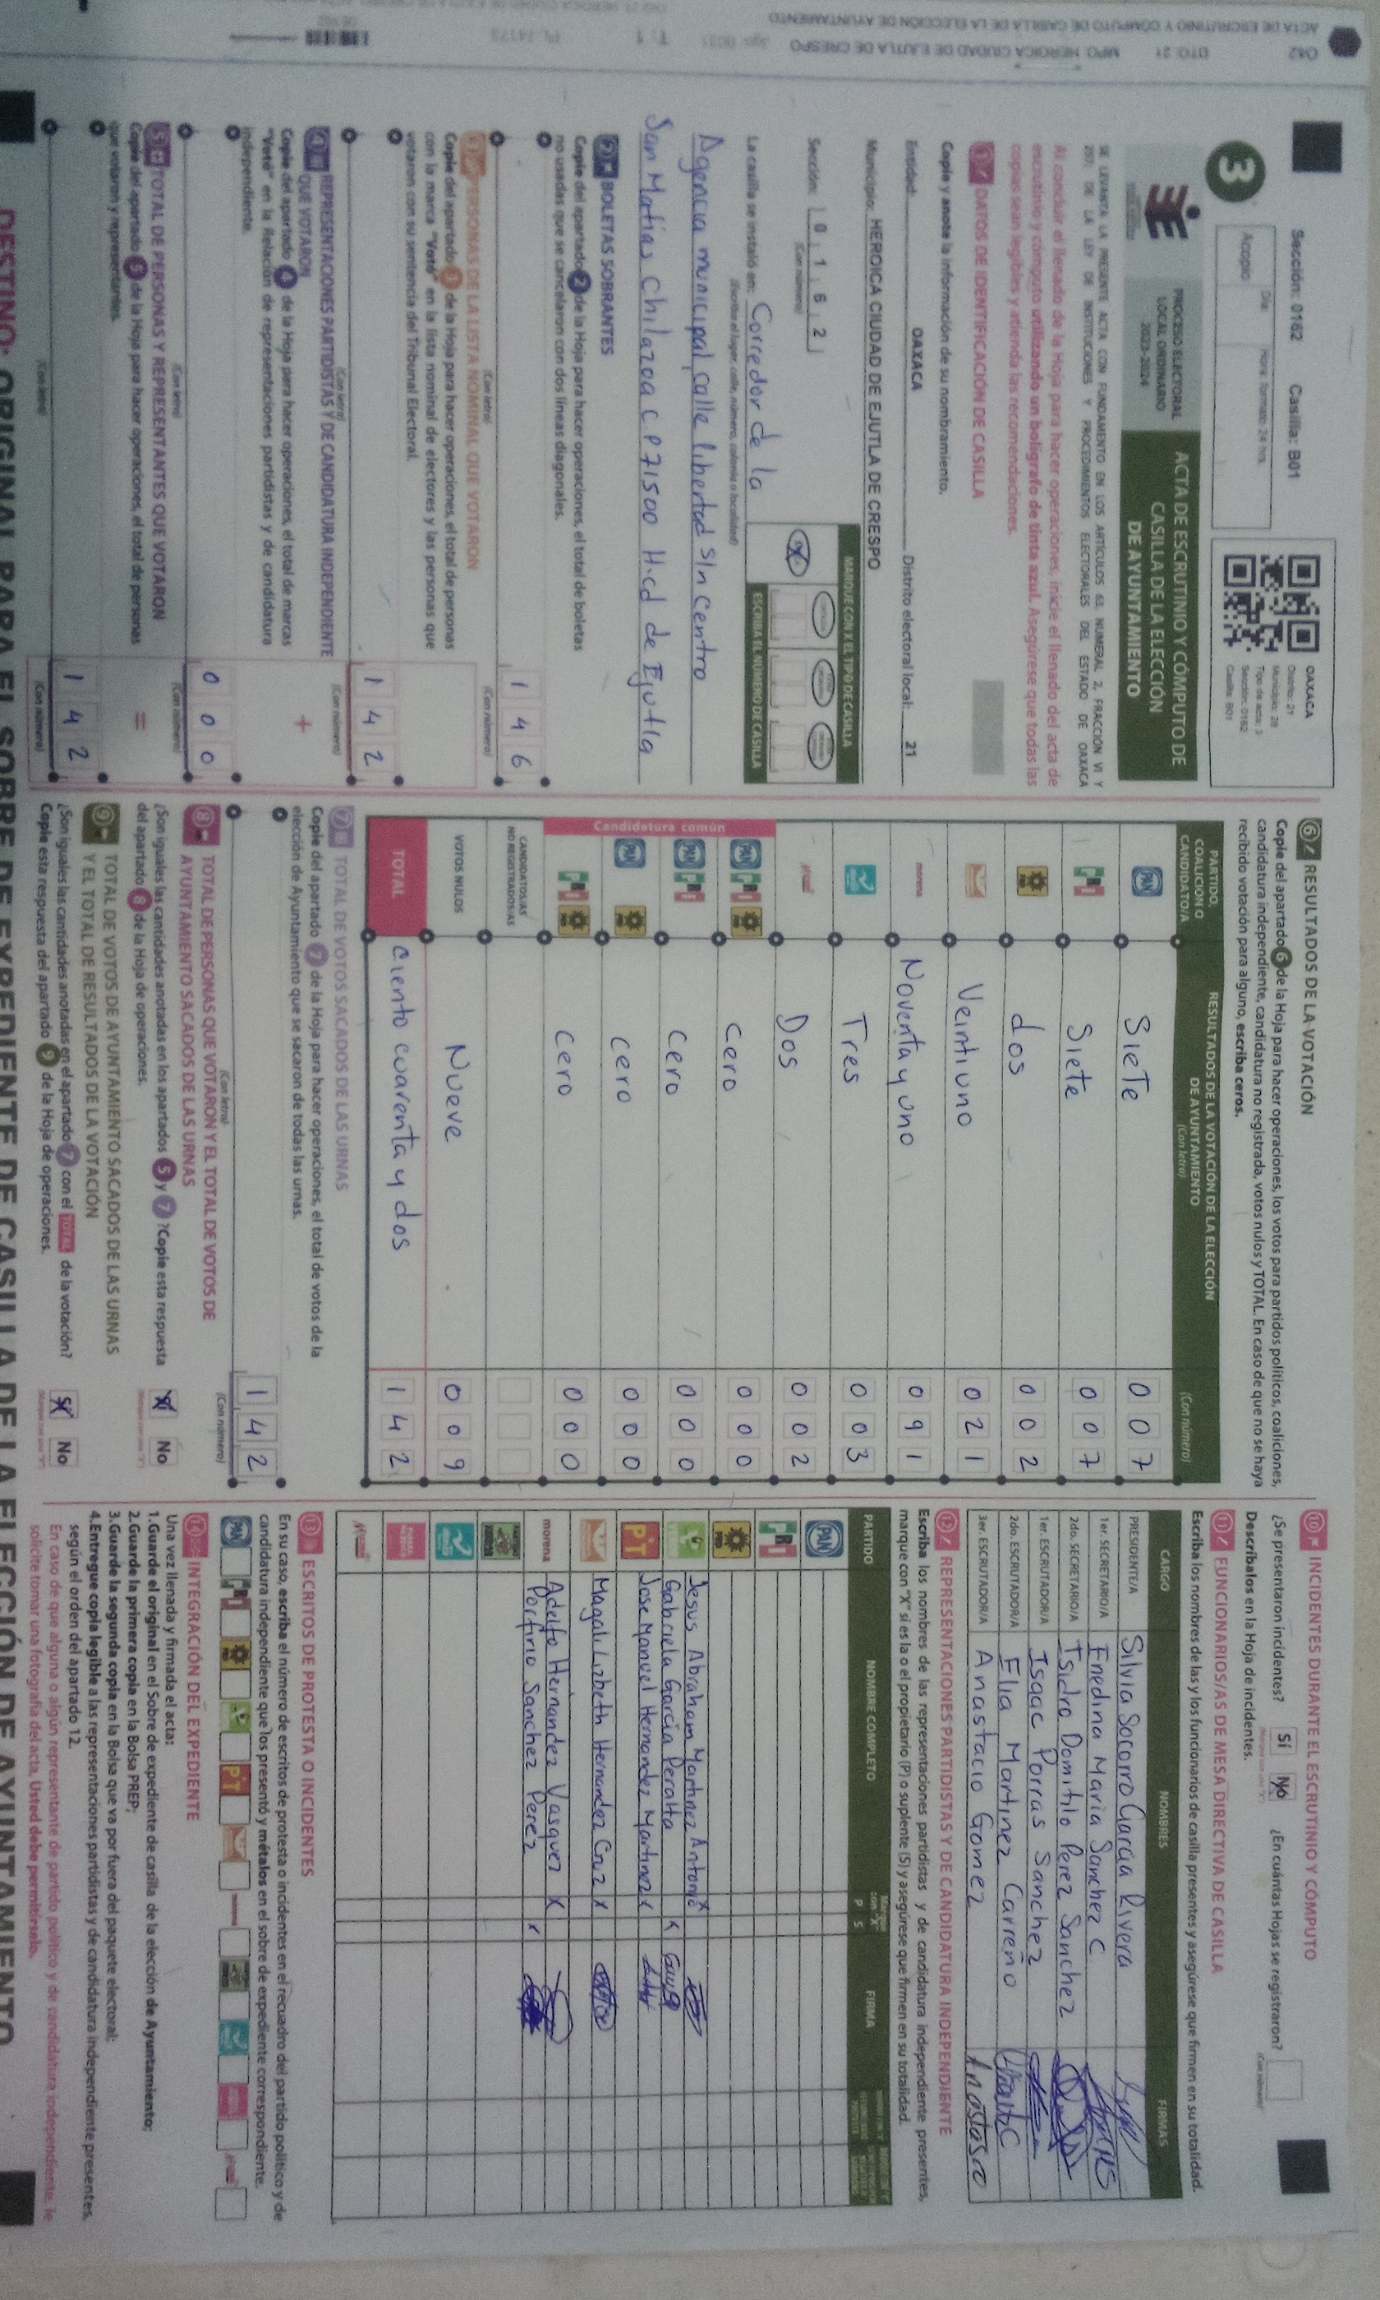 Sección: 0162 Casilla: B01
3
Acopio
PROCESO ELECTORAL
LOCAL ORDINARIO
2023-2024
ACTA DE ESCRUTINIO Y CÓMPUTO DE
CASILLA DE LA ELECCIÓN
DE AYUNTAMIENTO
OAXACA
Distrito: 21
SE LEVANTA LA PRESENTE ACTA CON FUNDAMENTO EN LOS ARTÍCULOS 63, NUMERAL 2, FRACCIÓN VI Y
207; DE LA LEY DE INSTITUCIONES Y PROCEDIMIENTOS ELECTORALES DEL ESTADO DE OAXACA
Al concluir el llenado de la Hoja para hacer operaciones, inicie el llenado del acta de
escrutinio y cómputo utilizando un bolígrafo de tinta azul. Asegúrese que todas las
copias sean legibles y atienda las recomendaciones.
1 DATOS DE IDENTIFICACIÓN DE CASILLA
Copie y anote la información de su nombramiento.
Entidad: OAXACA Distrito electoral local: 21
Municipio: HEROICA CIUDAD DE EJUTLA DE CRESPO
Sección: 0 1 6 2
(Con número)
MARQUE CON X EL TIPO DE CASILLA
ESCRIBA EL NÚMERO DE CASILLA
La casilla se instaló en: Corredor de la
(Escriba el lugar, calle, número, colonia o localidad)
Agencia municipal calle libertad s/n centro
San Matias Chilazoa C P 71500 H.cd de Ejutla
2 BOLETAS SOBRANTES
Copie del apartado 2 de la Hoja para hacer operaciones, el total de boletas
no usadas que se cancelaron con dos líneas diagonales.
1 4 6
(Con letra) (Con número)
3 PERSONAS DE LA LISTA NOMINAL QUE VOTARON
Copie del apartado 3 de la Hoja para hacer operaciones, el total de personas
con la marca "Votó" en la lista nominal de electores y las personas que
votaron con su sentencia del Tribunal Electoral.
1 4 2
(Con letra) (Con número)
4 REPRESENTACIONES PARTIDISTAS Y DE CANDIDATURA INDEPENDIENTE
QUE VOTARON
Copie del apartado 4 de la Hoja para hacer operaciones, el total de marcas
"Votó" en la Relación de representaciones partidistas y de candidatura
independiente.
+
0 0 0
(Con letra) (Con número)
5 TOTAL DE PERSONAS Y REPRESENTANTES QUE VOTARON
Copie del apartado 5 de la Hoja para hacer operaciones, el total de personas
que votaron y representantes.
=
1 4 2
(Con letra) (Con número)
6 RESULTADOS DE LA VOTACIÓN
Copie del apartado 6 de la Hoja para hacer operaciones, los votos para partidos políticos, coaliciones,
candidatura independiente, candidatura no registrada, votos nulos y TOTAL. En caso de que no se haya
recibido votación para alguno, escriba ceros.
PARTIDO, COALICIÓN O CANDIDATO/A RESULTADOS DE LA VOTACIÓN DE LA ELECCIÓN DE AYUNTAMIENTO (Con letra) (Con número)
PAN Siete 0 0 7
PRI Siete 0 0 7
PRD dos 0 0 2
Veintiuno 0 2 1
morena Noventa y uno 0 9 1
Tres 0 0 3
Dos 0 0 2
Candidatura común
PAN PRI PRD cero 0 0 0
PAN PRI cero 0 0 0
PAN PRD cero 0 0 0
PRI PRD cero 0 0 0
CANDIDATOS/AS NO REGISTRADOS/AS
VOTOS NULOS Nueve 0 0 9
TOTAL ciento cuarenta y dos 1 4 2
7 TOTAL DE VOTOS SACADOS DE LAS URNAS
Copie del apartado 7 de la Hoja para hacer operaciones, el total de votos de la
elección de Ayuntamiento que se sacaron de todas las urnas.
1 4 2
(Con letra) (Con número)
8 TOTAL DE PERSONAS QUE VOTARON Y EL TOTAL DE VOTOS DE
AYUNTAMIENTO SACADOS DE LAS URNAS
¿Son iguales las cantidades anotadas en los apartados 5 y 7? Copie esta respuesta
del apartado 8 de la Hoja de operaciones.
Sí No
9 TOTAL DE VOTOS DE AYUNTAMIENTO SACADOS DE LAS URNAS
Y EL TOTAL DE RESULTADOS DE LA VOTACIÓN
¿Son iguales las cantidades anotadas en el apartado 7 con el TOTAL de la votación?
Copie esta respuesta del apartado 9 de la Hoja de operaciones.
Sí No
10 INCIDENTES DURANTE EL ESCRUTINIO Y CÓMPUTO
¿Se presentaron incidentes? Sí No ¿En cuántas Hojas se registraron?
Descríbalos en la Hoja de incidentes.
11 FUNCIONARIOS/AS DE MESA DIRECTIVA DE CASILLA
Escriba los nombres de las y los funcionarios de casilla presentes y asegúrese que firmen en su totalidad.
CARGO NOMBRES FIRMAS
PRESIDENTE/A Silvia Socorro Garcia Rivera
1er. SECRETARIO/A Enedina Maria Sanchez C
2do. SECRETARIO/A Isidro Domitilo Perez Sanchez
1er. ESCRUTADOR/A Isaac Porras Sanchez
2do. ESCRUTADOR/A Elia Martinez Carreño
3er. ESCRUTADOR/A Anastacio Gomez
12 REPRESENTACIONES PARTIDISTAS Y DE CANDIDATURA INDEPENDIENTE
Escriba los nombres de las representaciones partidistas y de candidatura independiente presentes,
marque con "X" si es la o el propietario (P) o suplente (S) y asegúrese que firmen en su totalidad.
PARTIDO NOMBRE COMPLETO P S FIRMA
PAN
PRI
PRD
Jesus Abraham Martinez Antonio x
Gabriela Garcia Peralta x
PT Jose Manuel Hernandez Martinez x
Magali Lizbeth Hernandez Cruz x
morena Adelfo Hernandez Vasquez x
Porfirio Sanchez Perez x
13 ESCRITOS DE PROTESTA O INCIDENTES
En su caso, escriba el número de escritos de protesta o incidentes en el recuadro del partido político y de
candidatura independiente que los presentó y métalos en el sobre de expediente correspondiente.
PAN PRI PRD PT
14 INTEGRACIÓN DEL EXPEDIENTE
Una vez llenada y firmada el acta:
1.Guarde el original en el Sobre de expediente de casilla de la elección de Ayuntamiento;
2.Guarde la primera copia en la Bolsa PREP;
3.Guarde la segunda copia en la Bolsa que va por fuera del paquete electoral;
4.Entregue copia legible a las representaciones partidistas y de candidatura independiente presentes,
según el orden del apartado 12.
En caso de que alguna o algún representante de partido político y de candidatura independiente, le
solicite tomar una fotografía del acta, Usted debe permitírselo.
DESTINO: ORIGINAL PARA EL SOBRE DE EXPEDIENTE DE CASILLA DE LA ELECCIÓN DE AYUNTAMIENTO